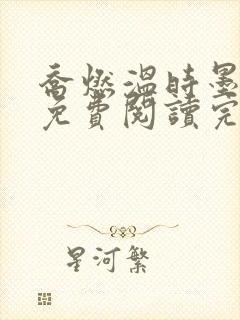 喬燃溫時墨
免費閱讀完
星河繁